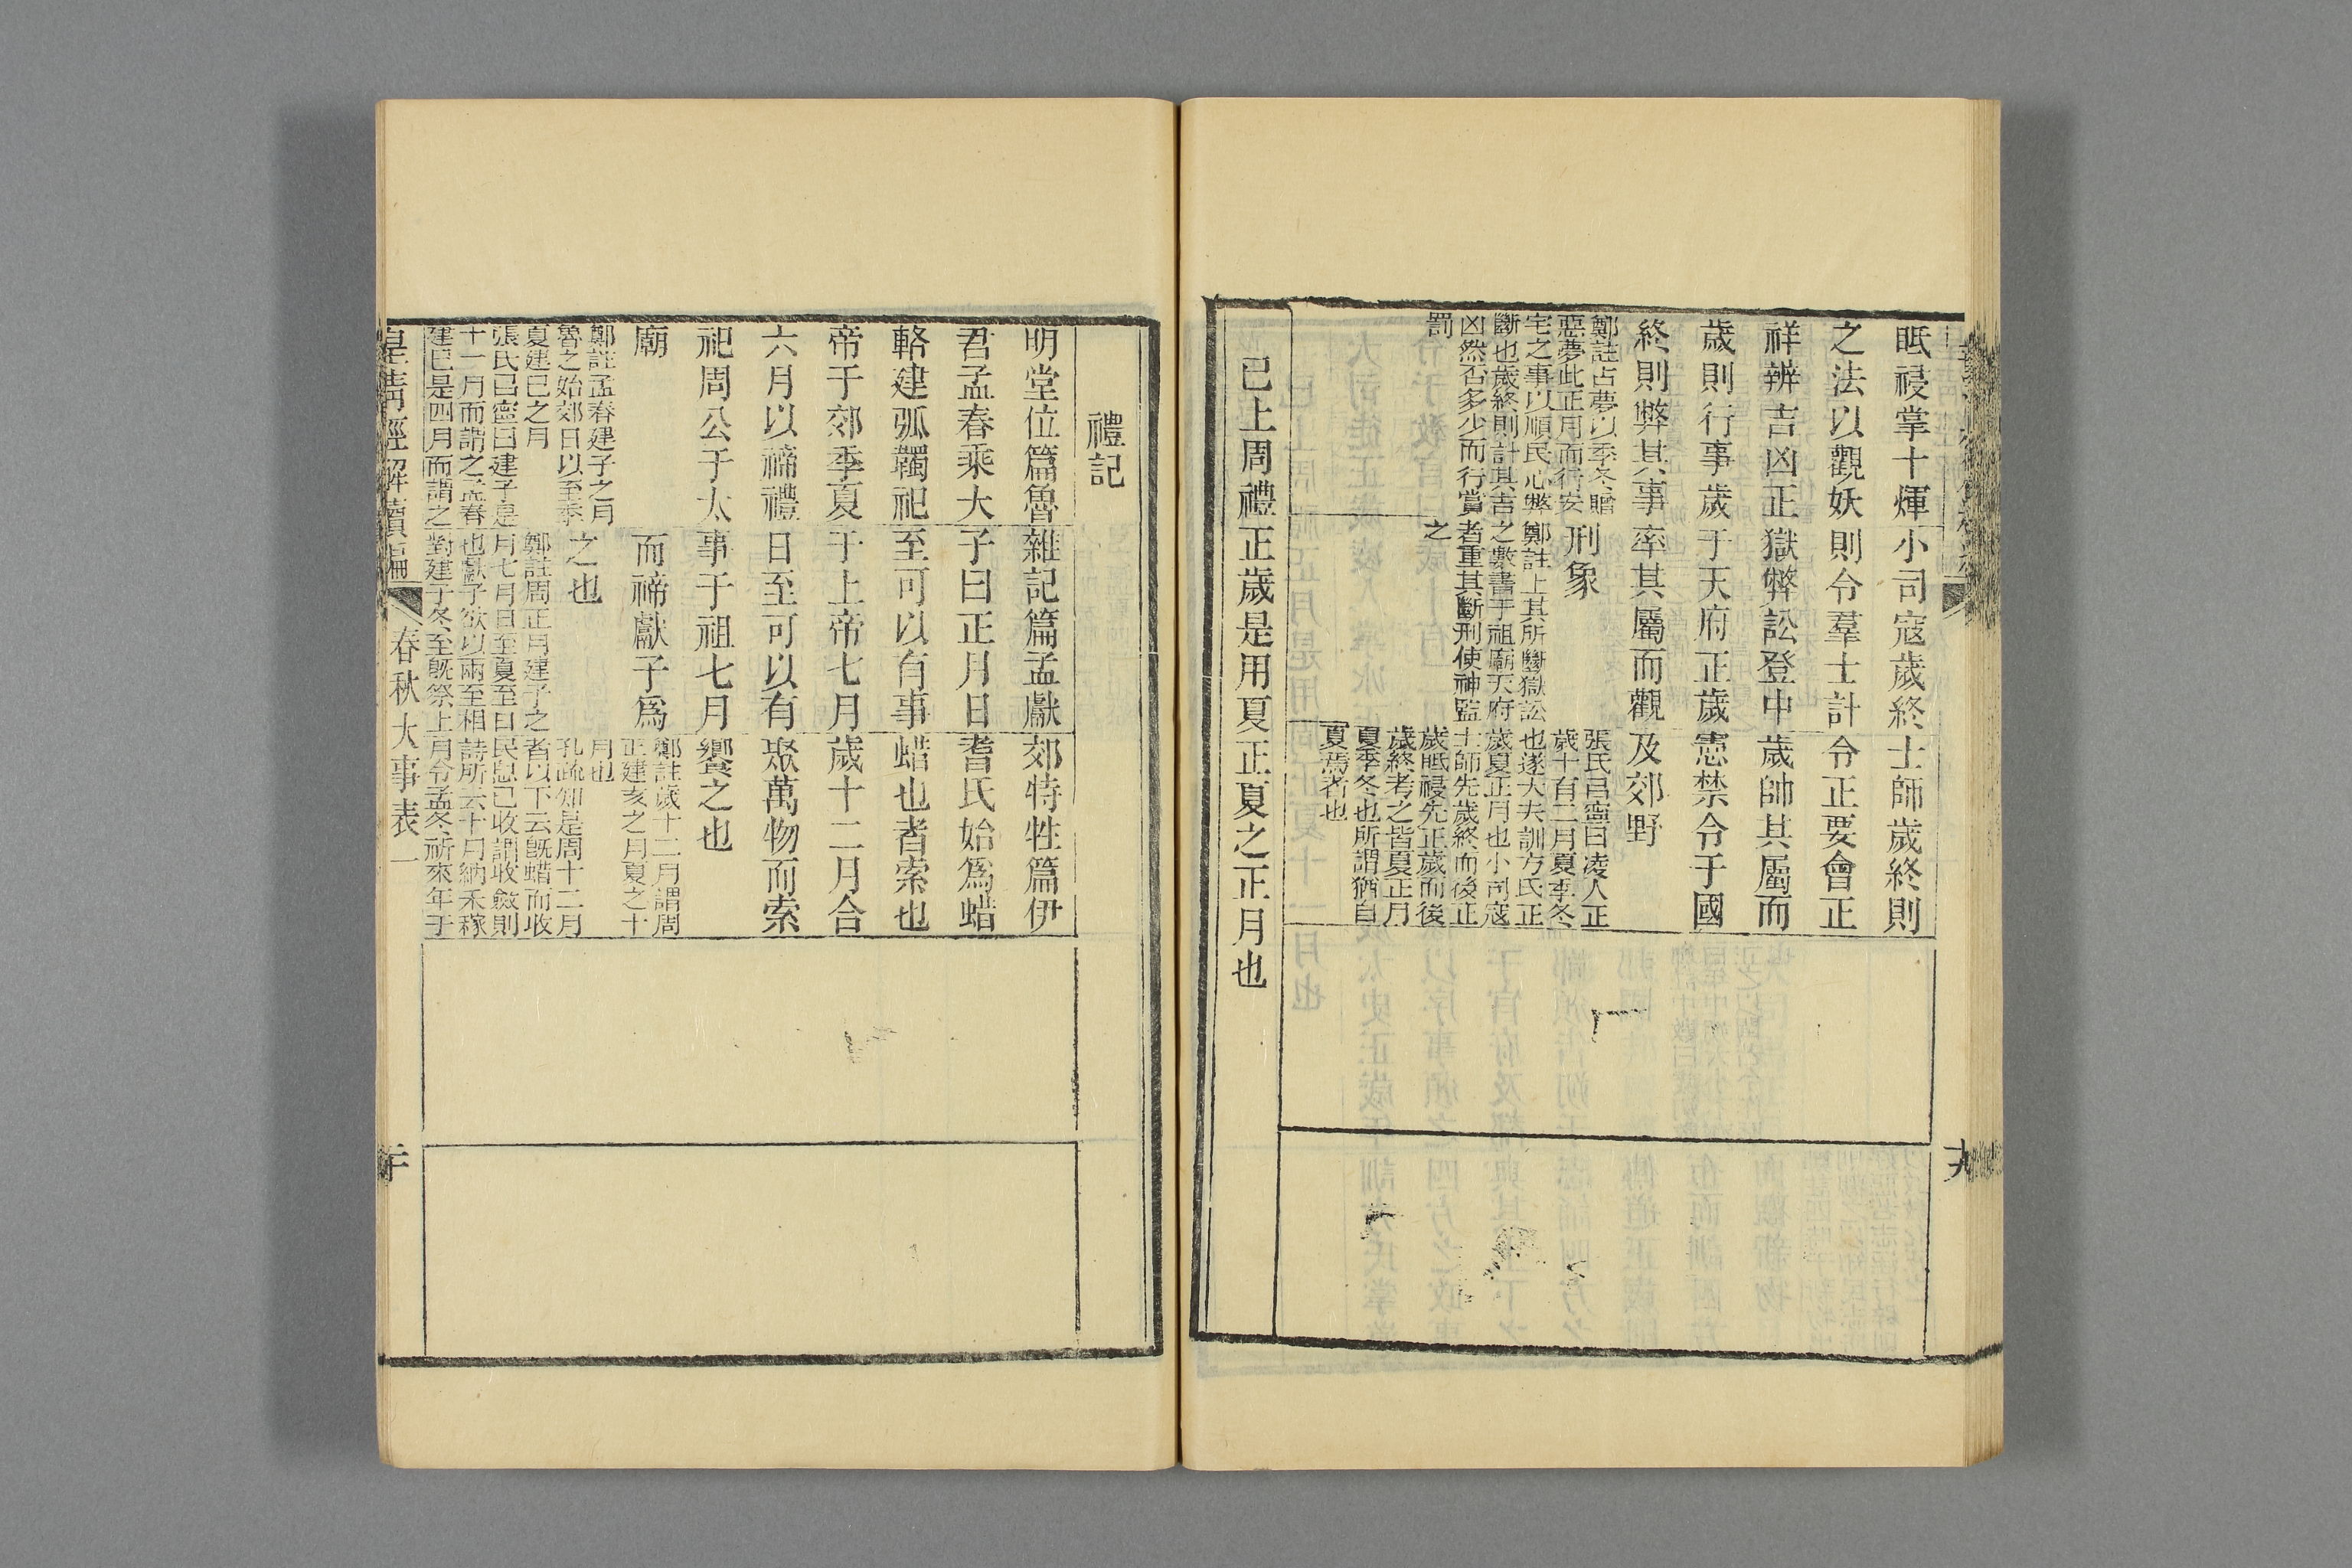 眡祲掌十煇
之法以觀妖
祥辨吉凶正
歲則行事歲
終則弊其事
鄭註占夢以季冬贈
惡夢此正月而行安
宅之事以順民心弊
斷也歲終則計其吉
凶然否多少而行賞
罰
小司寇歲終
則令羣士計
獄弊訟登中
于天府正歲
率其屬而觀
刑象
鄭註上其所斷獄訟
之數書于祖廟天府
者重其斷刑使神監
之
士師歲終則
令正要會正
歲帥其屬而
憲禁令于國
及郊野
張氏㠯寧曰凌人正
歲十有二月夏季冬
也遂大夫訓方氏正
歲夏正月也小司寇
士師先歲終而後正
歲眡祲先正歲而後
歲終考之皆夏正月
夏季冬也所謂猶自
夏焉者也
已上周禮正歲是用夏正夏之正月也
禮記
明堂位篇魯
君孟春乘大
輅建弧韣祀
帝于郊季夏
六月以禘禮
祀周公于太
廟
鄭註孟春建子之月
魯之始郊日以至季
夏建巳之月
張氏㠯寧曰建子是
十一月而謂之孟春
建巳是四月而謂之
雜記篇孟獻
子曰正月日
至可以有事
于上帝七月
日至可以有
事于祖七月
而禘獻子爲
之也
鄭註周正月建子之
月七月日至夏至日
也獻子欲以兩至相
對建子冬至旣祭上
郊特牲篇伊
耆氏始爲蜡
蜡也者索也
歲十二月合
聚萬物而索
饗之也
鄭註歲十二月謂周
正建亥之月夏之十
月也
孔疏知是周十二月
者以下云旣蜡而收
民息已收謂收斂則
詩所云十月納禾稼
月令孟冬祈來年于
皇淸經解續編 春秋大事表一